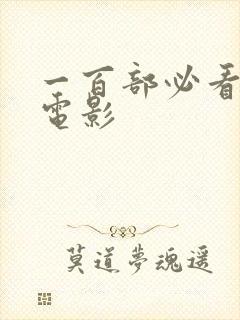 一百部必看
電影
莫道夢魂遥